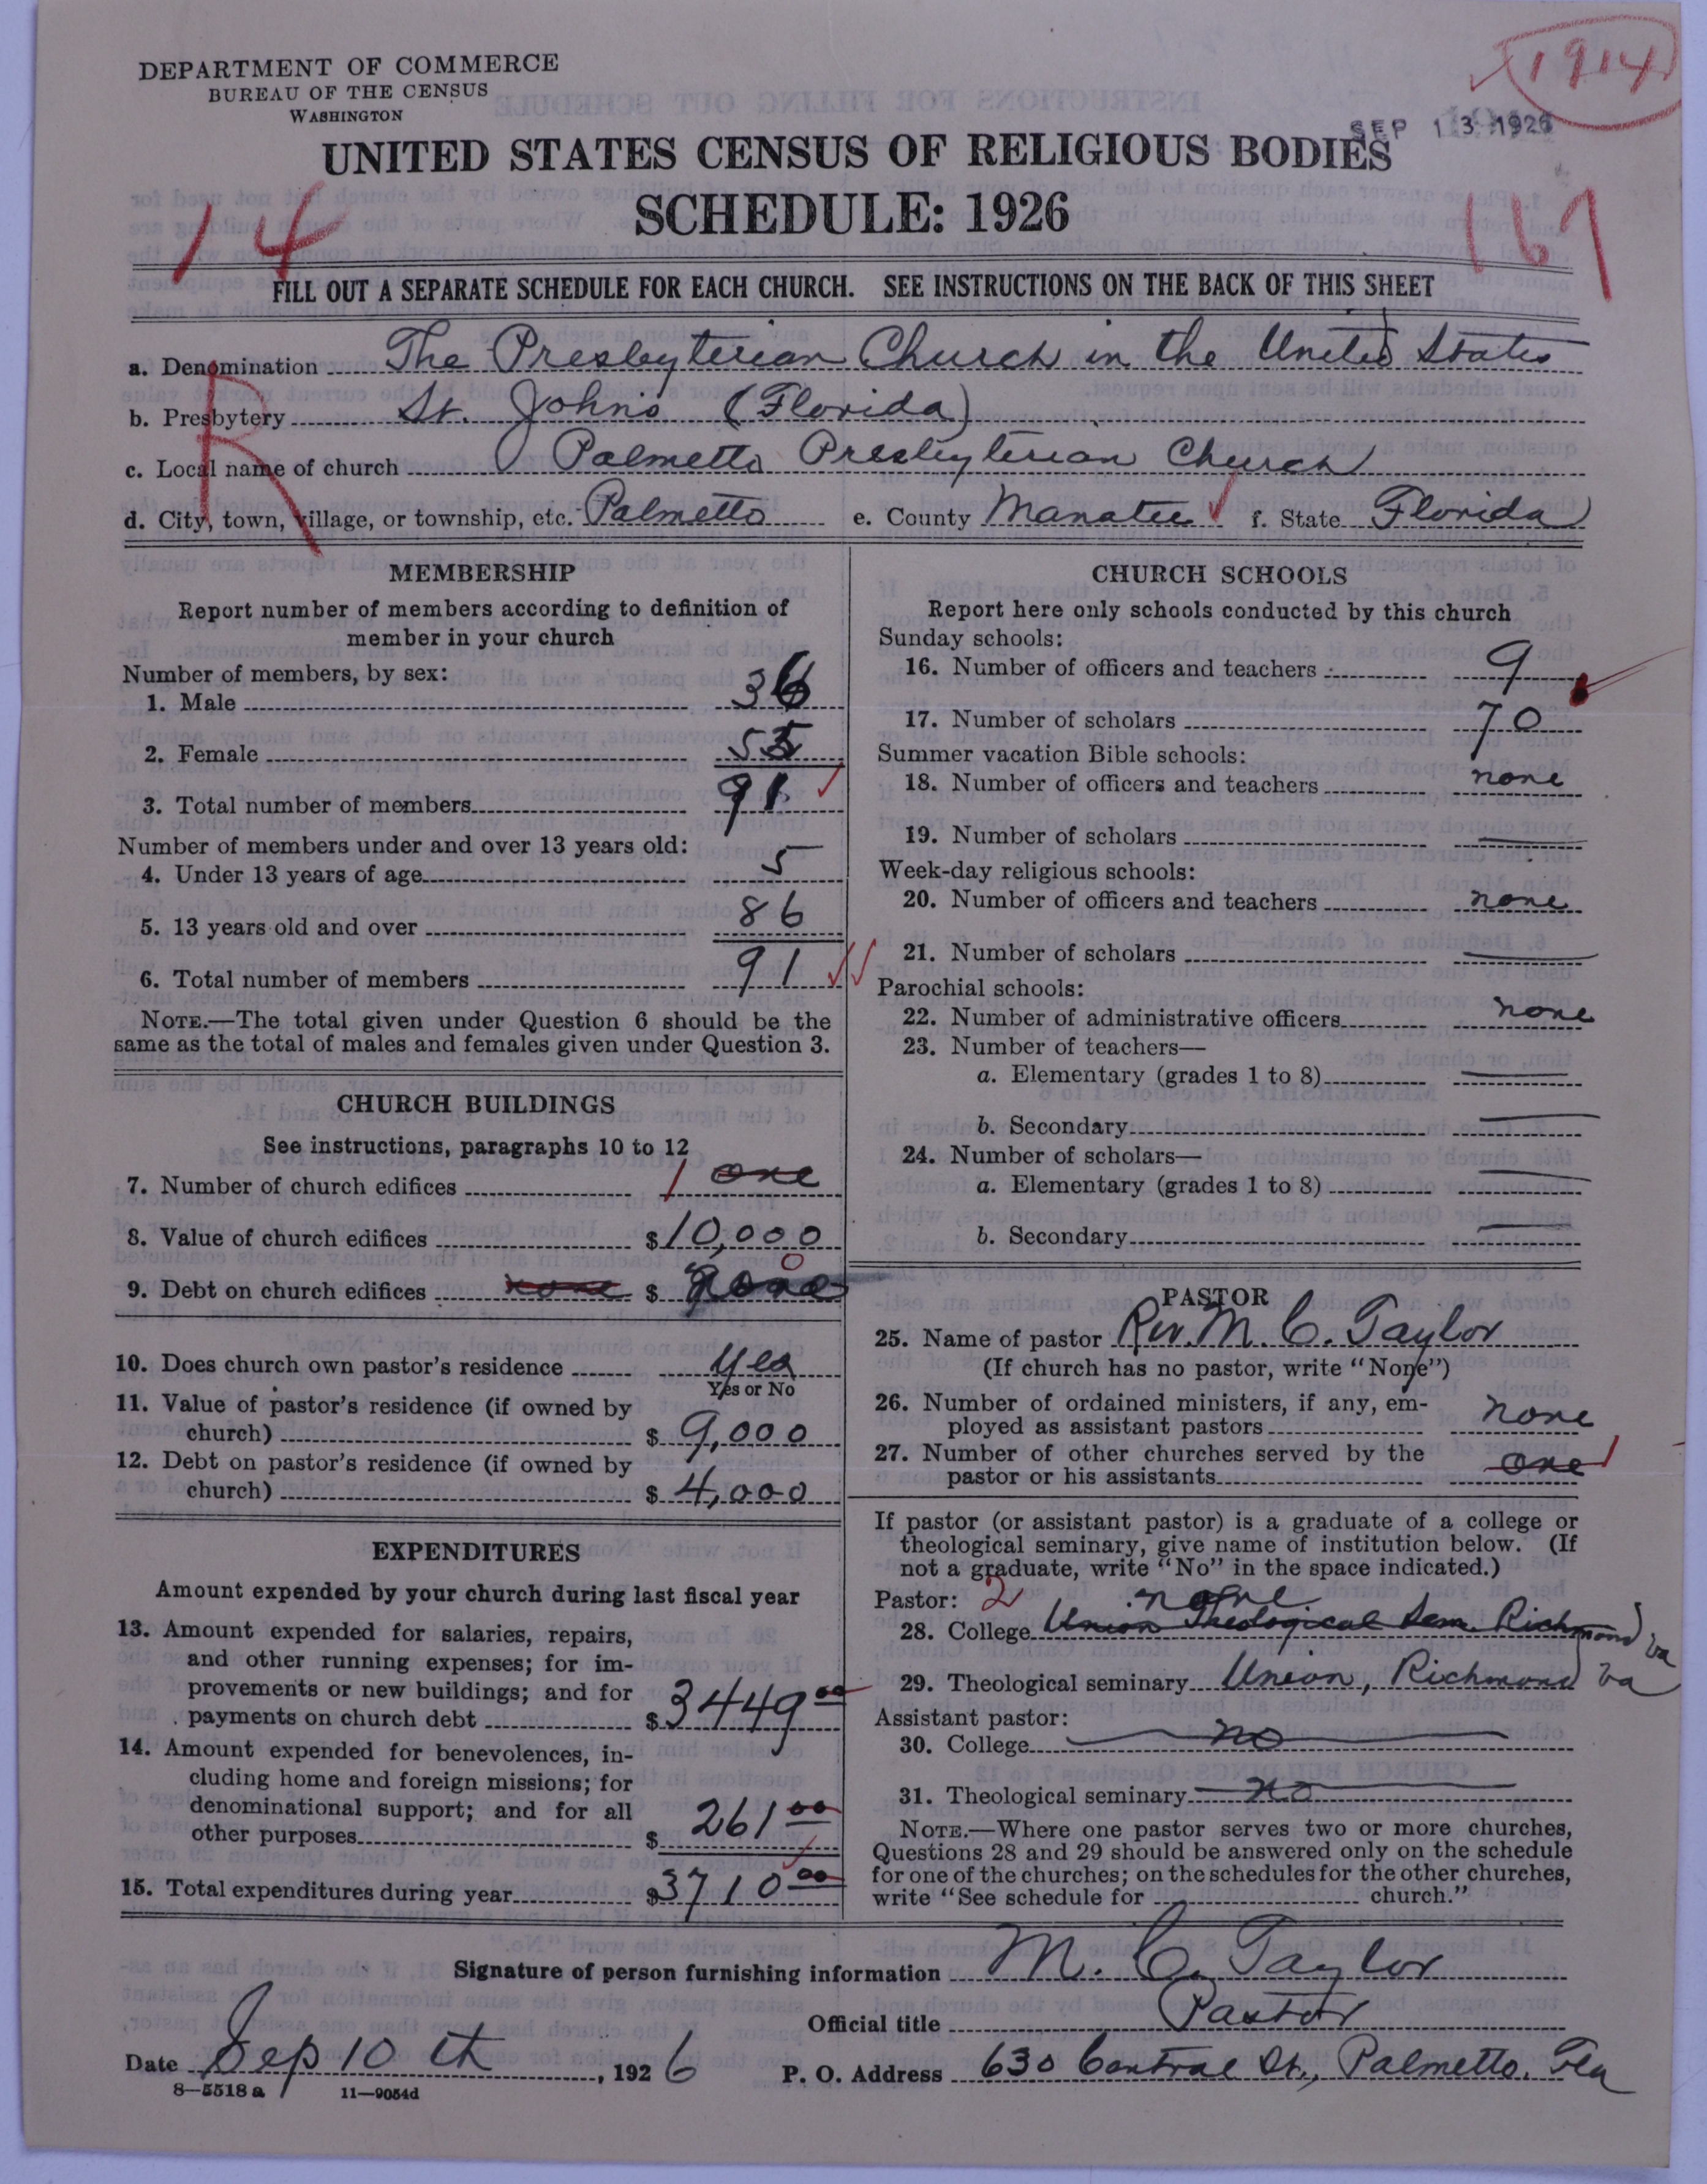 1914
DEPARTMENT OF COMMERCE
BUREAU OF THE CENSUS
WASHINGTON
SEP 13 1926
UNITED STATES CENSUS OF RELIGIOUS BODIES
SCHEDULE: 1926
14
167
FILL OUT A SEPARATE SCHEDULE FOR EACH CHURCH. SEE INSTRUCTIONS ON THE BACK OF THIS SHEET
R
a. Denomination The Presbyterian Church in the United States
b. Presbytery St. Johns (Florida)
c. Local name of church Palmetto Presbyterian Church
d. City, town, village, or township, etc. Palmetto e. County Manatee f. State Florida
MEMBERSHIP
Report number of members according to definition of
member in your church
Number of members, by sex:
1. Male 36
2. Female 55
3. Total number of members 91
Number of members under and over 13 years old:
4. Under 13 years of age 5
5. 13 years old and over 86
6. Total number of members 91
NOTE.—The total given under Question 6 should be the
same as the total of males and females given under Question 3.
CHURCH BUILDINGS
See instructions, paragraphs 10 to 12
7. Number of church edifices 1 one
8. Value of church edifices $10,000
9. Debt on church edifices none $ none 0
10. Does church own pastor's residence Yes
Yes or No
11. Value of pastor's residence (if owned by
church) $ 9,000
12. Debt on pastor's residence (if owned by
church) $ 4,000
EXPENDITURES
Amount expended by your church during last fiscal year
13. Amount expended for salaries, repairs,
and other running expenses; for im-
provements or new buildings; and for
payments on church debt $3449 00
14. Amount expended for benevolences, in-
cluding home and foreign missions; for
denominational support; and for all
other purposes $ 261 00
15. Total expenditures during year $3710 00
CHURCH SCHOOLS
Report here only schools conducted by this church
Sunday schools:
16. Number of officers and teachers 9
17. Number of scholars 70
Summer vacation Bible schools:
18. Number of officers and teachers none
19. Number of scholars
Week-day religious schools:
20. Number of officers and teachers none
21. Number of scholars
Parochial schools:
22. Number of administrative officers none
23. Number of teachers—
a. Elementary (grades 1 to 8)
b. Secondary
24. Number of scholars—
a. Elementary (grades 1 to 8)
b. Secondary
PASTOR
25. Name of pastor Rev. M. C. Taylor
(If church has no pastor, write "None")
26. Number of ordained ministers, if any, em-
ployed as assistant pastors none
27. Number of other churches served by the
pastor or his assistants one 1
If pastor (or assistant pastor) is a graduate of a college or
theological seminary, give name of institution below. (If
not a graduate, write "No" in the space indicated.)
Pastor: 2 none
28. College Union Theological Sem. Richmond Va
29. Theological seminary Union, Richmond Va
Assistant pastor:
30. College no
31. Theological seminary no
NOTE.—Where one pastor serves two or more churches,
Questions 28 and 29 should be answered only on the schedule
for one of the churches; on the schedules for the other churches,
write "See schedule for church."
Signature of person furnishing information M. C. Taylor
Official title Pastor
Date Sep 10 th, 1926 P. O. Address 630 Central St., Palmetto, Fla
8—5518 a 11—9054d